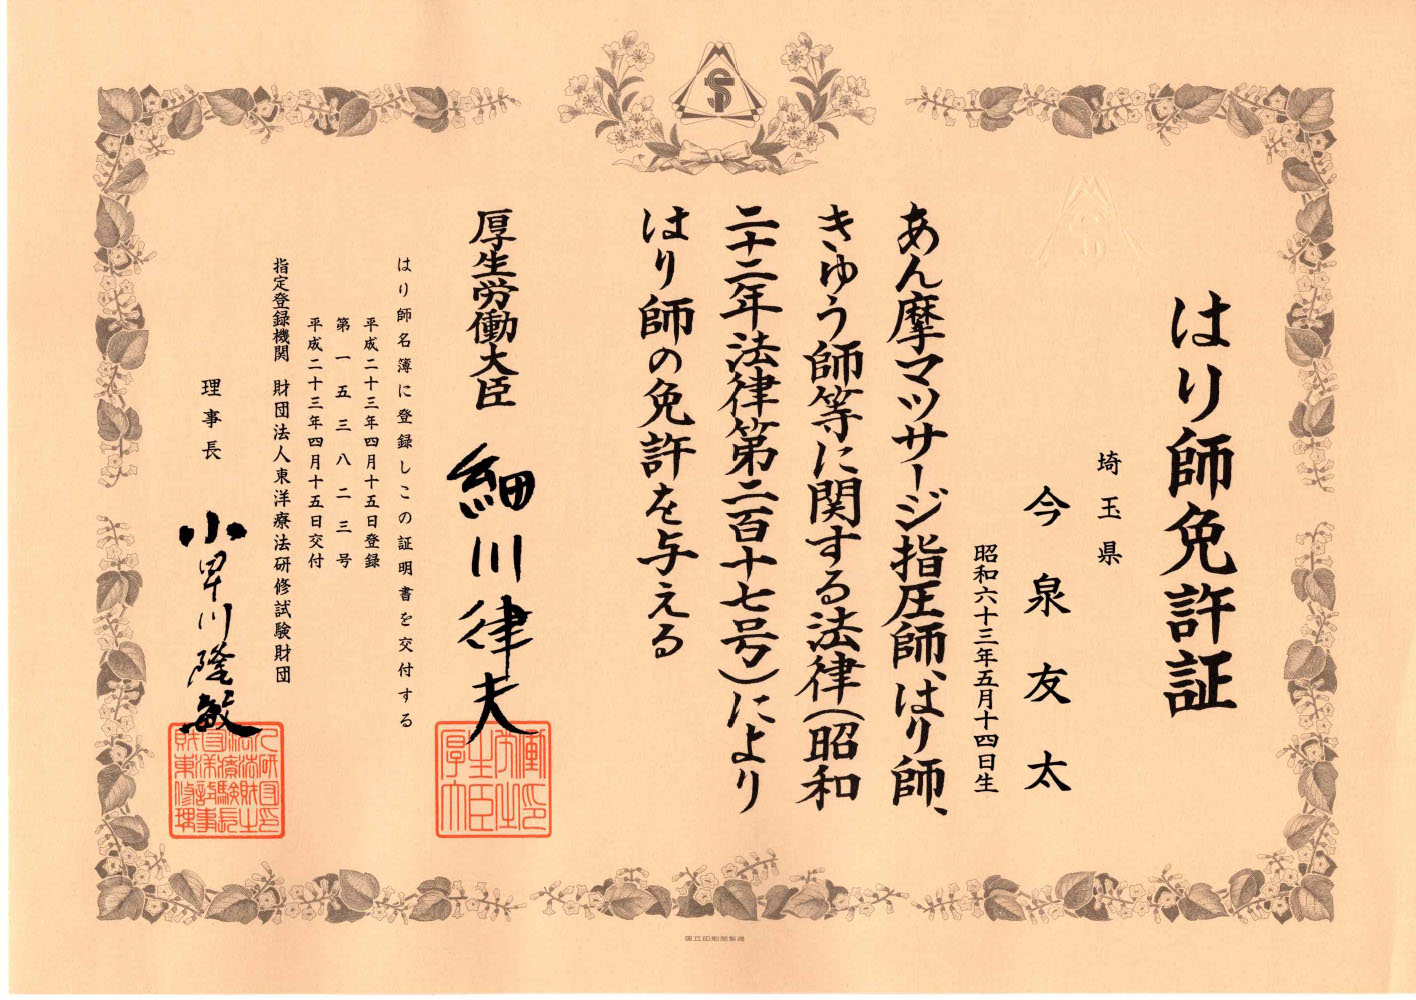 はり師免許証
埼玉県
今泉友太
昭和六十三年五月十四日生
あん摩マツサージ指圧師、はり師、
きゆう師等に関する法律(昭和
二十二年法律第二百十七号)により
はり師の免許を与える
厚生労働大臣 細川律夫
はり師名簿に登録しこの証明書を交付する
平成二十三年四月十五日登録
第一五三八二三号
平成二十三年四月十五日交付
指定登録機関 財団法人東洋療法研修試験財団
理事長 小早川隆敏
国立印刷局製造